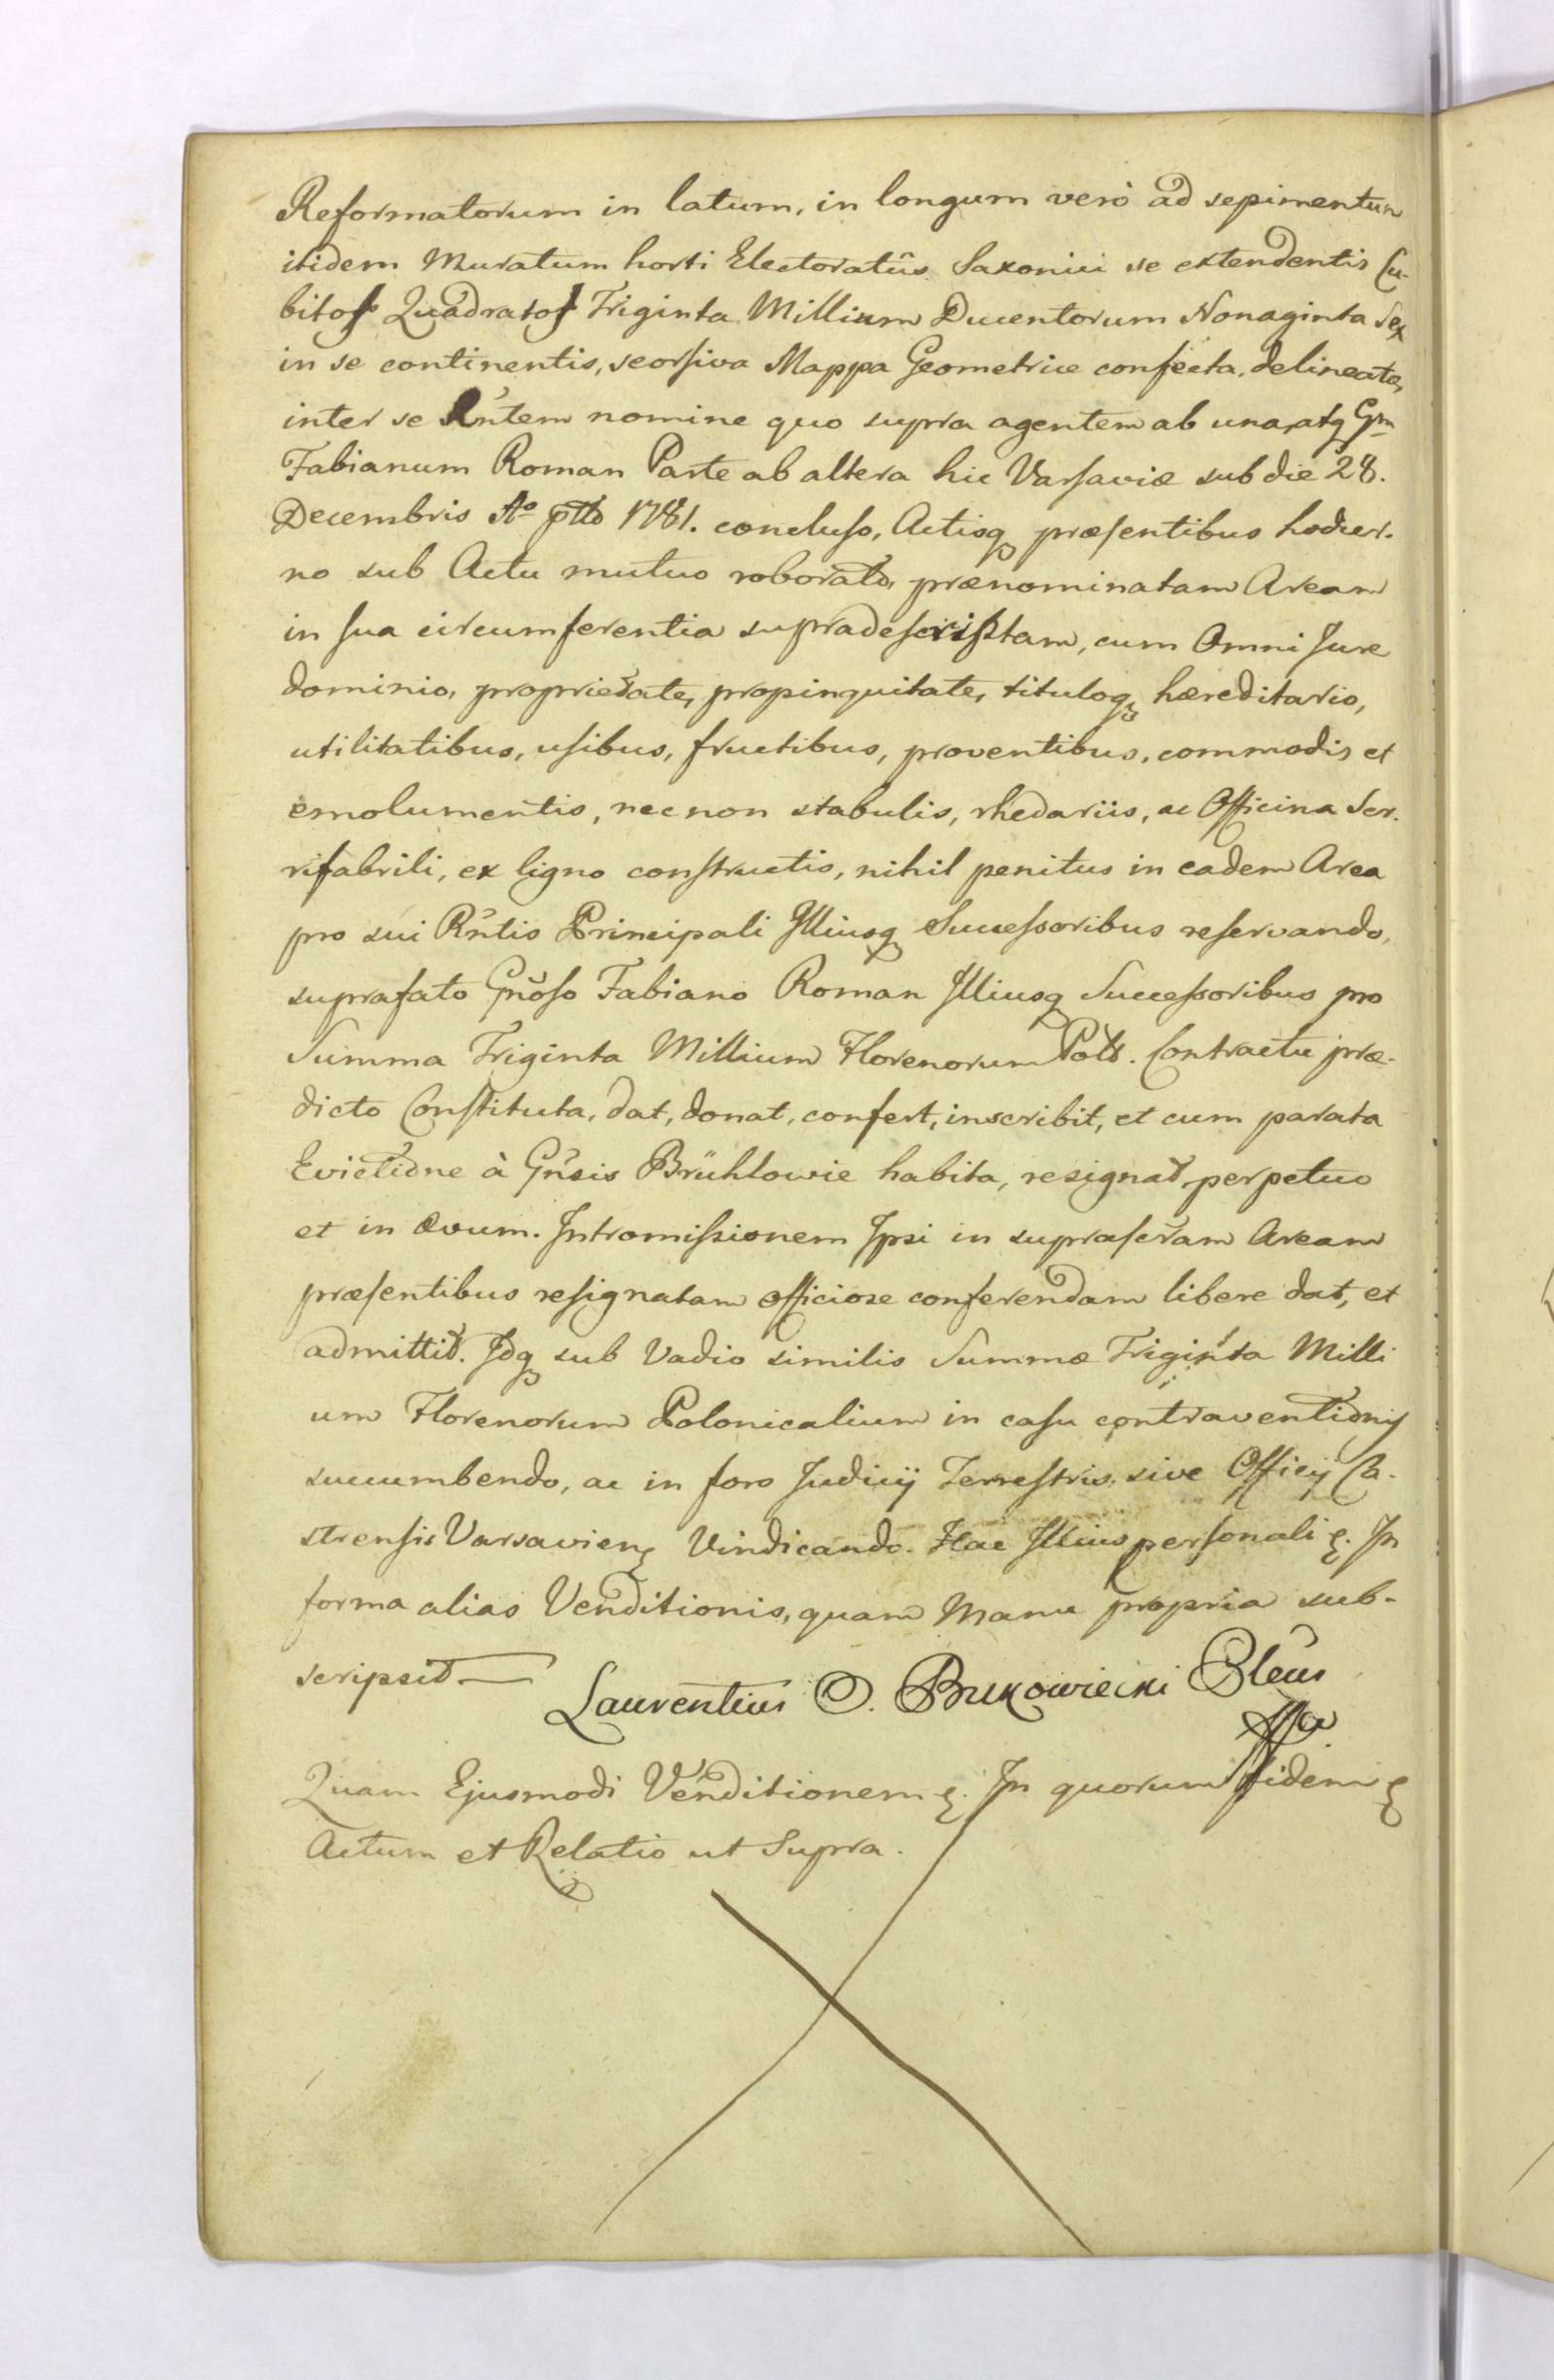 Reformatorum in latum, in longum verò ad sepimentum
itidem Muratum horti Electoratûs Saxonici se extendentis Cu-
bitos Quadratos Triginta Millium Ducentorum Nonaginta Sex
in se continentis, seorsiva Mappa Geometrice confecta, delineata,
inter se Rñtem nomine quo supra agentem ab una, atq Gm
Fabianum Roman Parte ab altera hic Varsaviæ sub die 28.
Decembris Aº ptto 1781. concluso, Actisq præsentibus hodier-
no sub Actu mutuo roborato, prænominatam Aream
in sua circumferentia supradescriptam, cum Omni Jure
dominio, proprietate, propinquitate, tituloq hæreditario,
utilitatibus, usibus, fructibus, proventibus, commodis et
emolumentis, nec non stabulis, rhedariis, ac Officina Ser-
rifabrili, ex ligno constructis, nihil penitus in eadem Area
pro sui Rñtis Principali Illiusq Successoribus reservando,
suprafato Gñoso Fabiano Roman Illiusq Successoribus pro
Summa Triginta Millium Florenorum Polł. Contractu præ-
dicto Constituta, dat, donat, confert, inscribit, et cum parata
Evictione à Gñsis Brühlowie habita, resignat, perpetuo
et in ævum. Intromissionem Ipsi in suprafatam Aream
præsentibus resignatam officiose conferendam libere dat, et
admittit. Idq sub Vadio similis Summæ Triginta Milli
um Florenorum Polonicalium in casu contraventionis
succumbendo, ac in foro Judicij Terrestris, sive Officij Ca-
strensis Varsavien Vindicando. Hac Illius personali. In
forma alias Venditionis, quam Manu propria sub-
scripsit — Laurentius O. Brukowiecki Plenus
Quam Ejusmodi Venditionem. In quorum fidem
Actum et Relatio ut Supra.